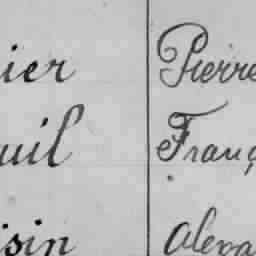 ier Pierre
uil Franç
isin Alexa